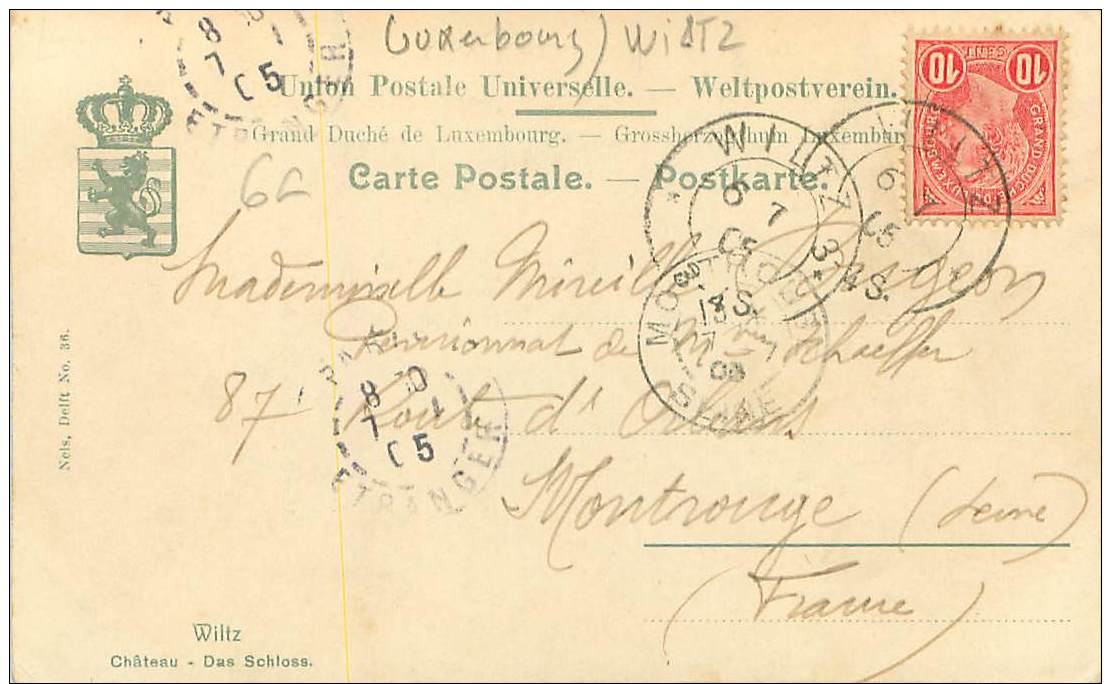 Luxembourg) Wiltz
Union Postale Universelle. — Weltpostverein.
Grand Duché de Luxembourg. — Grossherzogthum Luxemburg
Carte Postale. — Postkarte.
10 CENT 10
GRAND-DUCHÉ DE LUXEMBOURG
8
7
05
ETRANGER
WILTZ
6 7
05
3-4S.
WILTZ
6 7
05
MONTROUGE
SEINE
Mademoiselle Mireille
Pensionnat de Mme Schaeffer
87 Route d'Orléans
Montrouge (Seine)
(France)
PARIS
8
7
05
ETRANGER
Nels, Delft No. 36.
Wiltz
Château - Das Schloss.